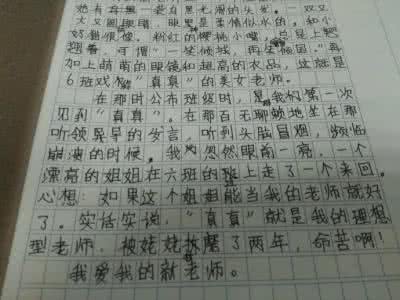 她有着黑一袭自黑无滑的头发。一双又
大又圆眼睛,眼里是柔情似水的。和小
好猫很像,粉红的樱桃小嘴,总是上翘
翘着,可谓“一笑倾城,再笑倾国。”再
加上萌萌的眼镜和超高的衣品,这就是
6班戏称“真真”的美女老师。
在那时公布班级时,是我们第一次
见到“真真”。在那百无聊赖地坐在那
听领导早的发言,听到头脑冒烟,频临
崩溃的时候。我忽然眼前一亮,一个
漂亮的姐姐在六班的班上走了一个来回。
心想:如果这个姐姐能当我的老师就好
了。实话实说,“真真”就是我的理想
型老师,被姥姥折磨了两年,命苦啊!
我爱我的新老师。